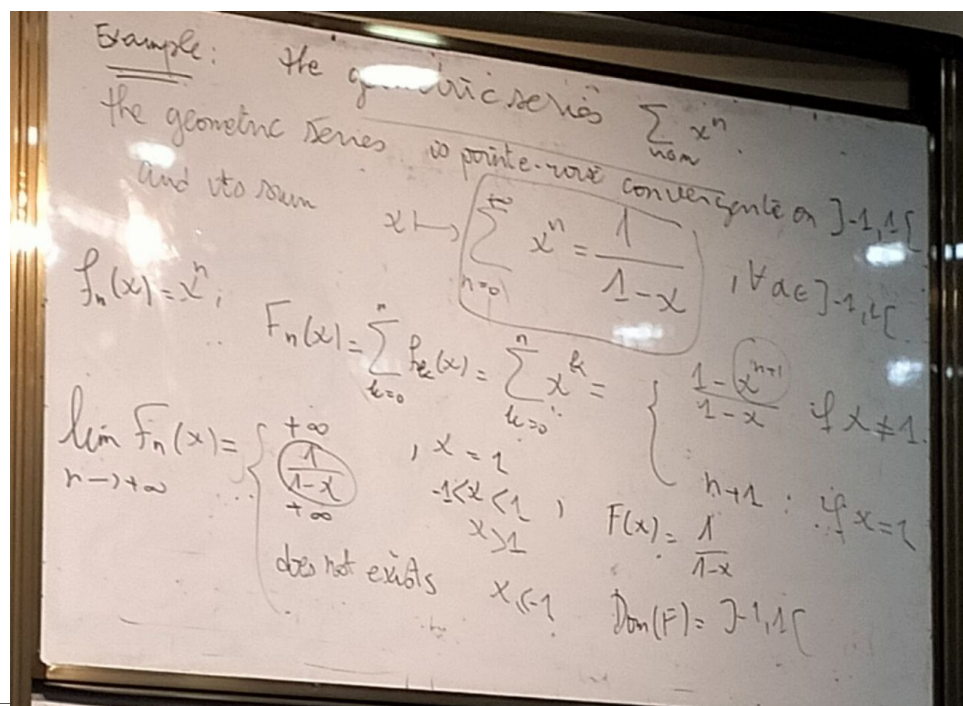 Example: the geometric series ∑_{n∈ℕ} x^n.
the geometric series is pointe-wise convergente on ]-1,1[
and its sum x ↦ ∑_{n=0}^{+∞} x^n = 1/(1-x) , ∀x∈]-1,1[
f_n(x)=x^n ; F_n(x)= ∑_{k=0}^{n} f_k(x) = ∑_{k=0}^{n} x^k = { (1-x^{n+1})/(1-x) if x≠1.
n+1 : if x=1
lim_{n→+∞} F_n(x)= { +∞ , x=1
1/(1-x) -1<x<1 ; F(x)= 1/(1-x)
+∞ x>1
does not exists x≤-1 Dom(F)= ]-1,1[